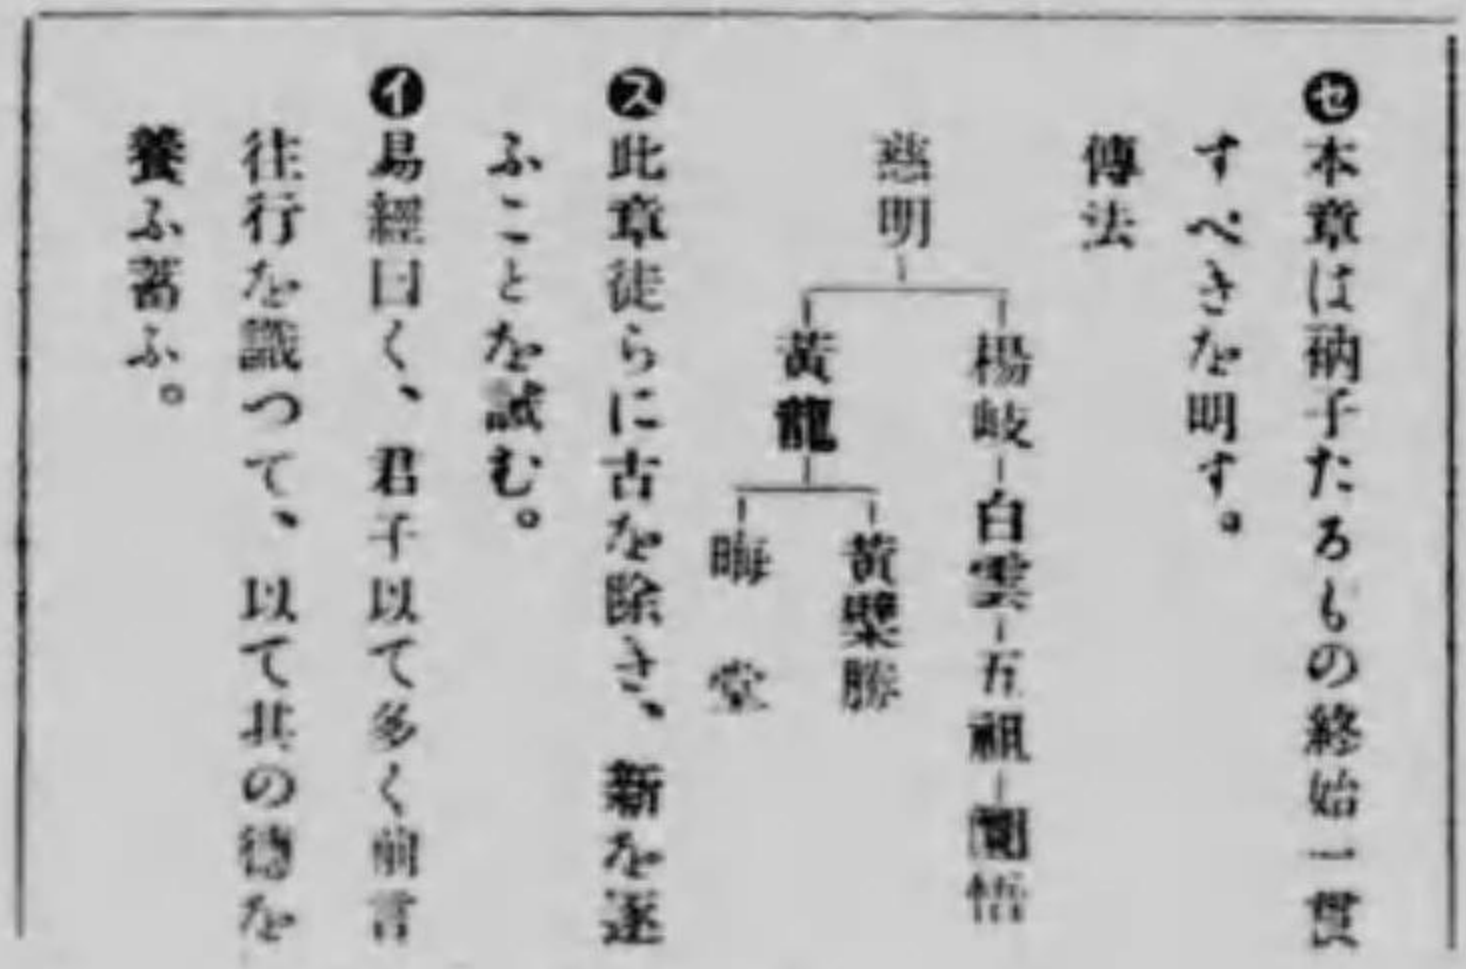 セ本章は衲子たるもの終始一貫
すべきを明す。
傳法
慈明
楊岐-白雲-五祖-圜悟
黃龍
黃檗勝
晦堂
ス此章徒らに古を除き、新を逐
ふことを誡む。
イ易經曰く、君子以て多く前言
往行を識つて、以て其の德を
養ふ蓄ふ。